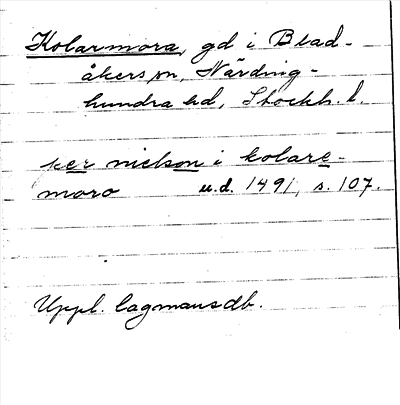 Kolarmora, gd i Blad-
åkers sn, Närding-
hundra hd, Stockh. l.
per nielson i kolare-
moro u.d. 1491, s. 107.
Uppl. lagmansdb.